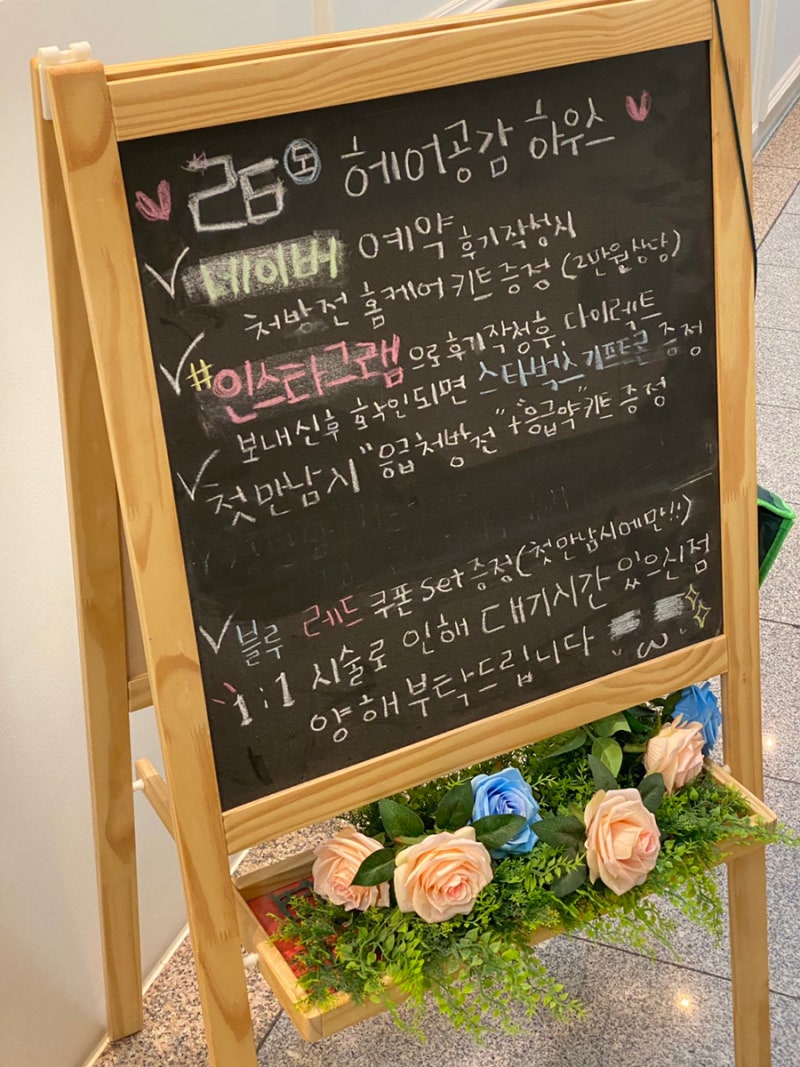 26도 헤어공감 하우스
네이버 예약 후기작성시
처방전 홈케어 키트 증정 (2만원상당)
#인스타그램으로 후기작성후, 다이렉트
보내신후 확인되면 스타벅스기프트콘 증정
첫만남시 "응급처방전"+"응급약"키트 증정
블루 레드 쿠폰 set 증정(첫만남시에만!!)
1:1 시술로 인해 대기시간 있으신점
양해부탁드립니다